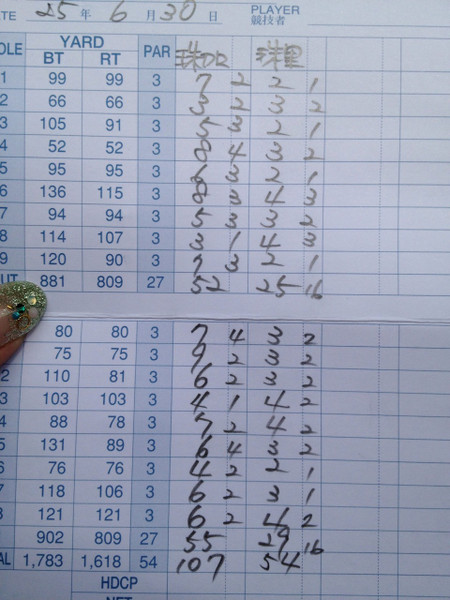 ATE 25 年 6 月 30 日 PLAYER 競技者
OLE YARD PAR
BT RT
1 99 99 3 7 2 2 1
2 66 66 3 3 2 3 2
3 105 91 3 5 3 2 1
4 52 52 3 8 4 3 2
5 95 95 3 6 3 2 1
6 136 115 3 8 3 4 3
7 94 94 3 5 3 3 2
8 114 107 3 3 1 4 3
9 120 90 3 7 3 2 1
OUT 881 809 27 52 25 16
80 80 3 7 4 3 2
75 75 3 9 2 3 2
2 110 81 3 6 2 3 2
3 103 103 3 4 1 4 2
4 88 78 3 7 2 4 2
5 131 89 3 6 4 3 2
6 76 76 3 4 2 2 1
7 118 106 3 6 2 3 1
8 121 121 3 6 2 4 2
902 809 27 55 29 16
AL 1,783 1,618 54 107 54
HDCP
NET